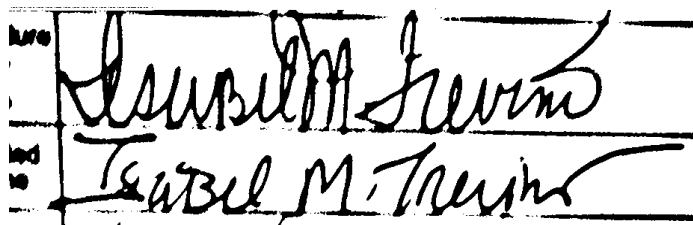 ture Isabel M Trevino
ed Isabel M. Trevino